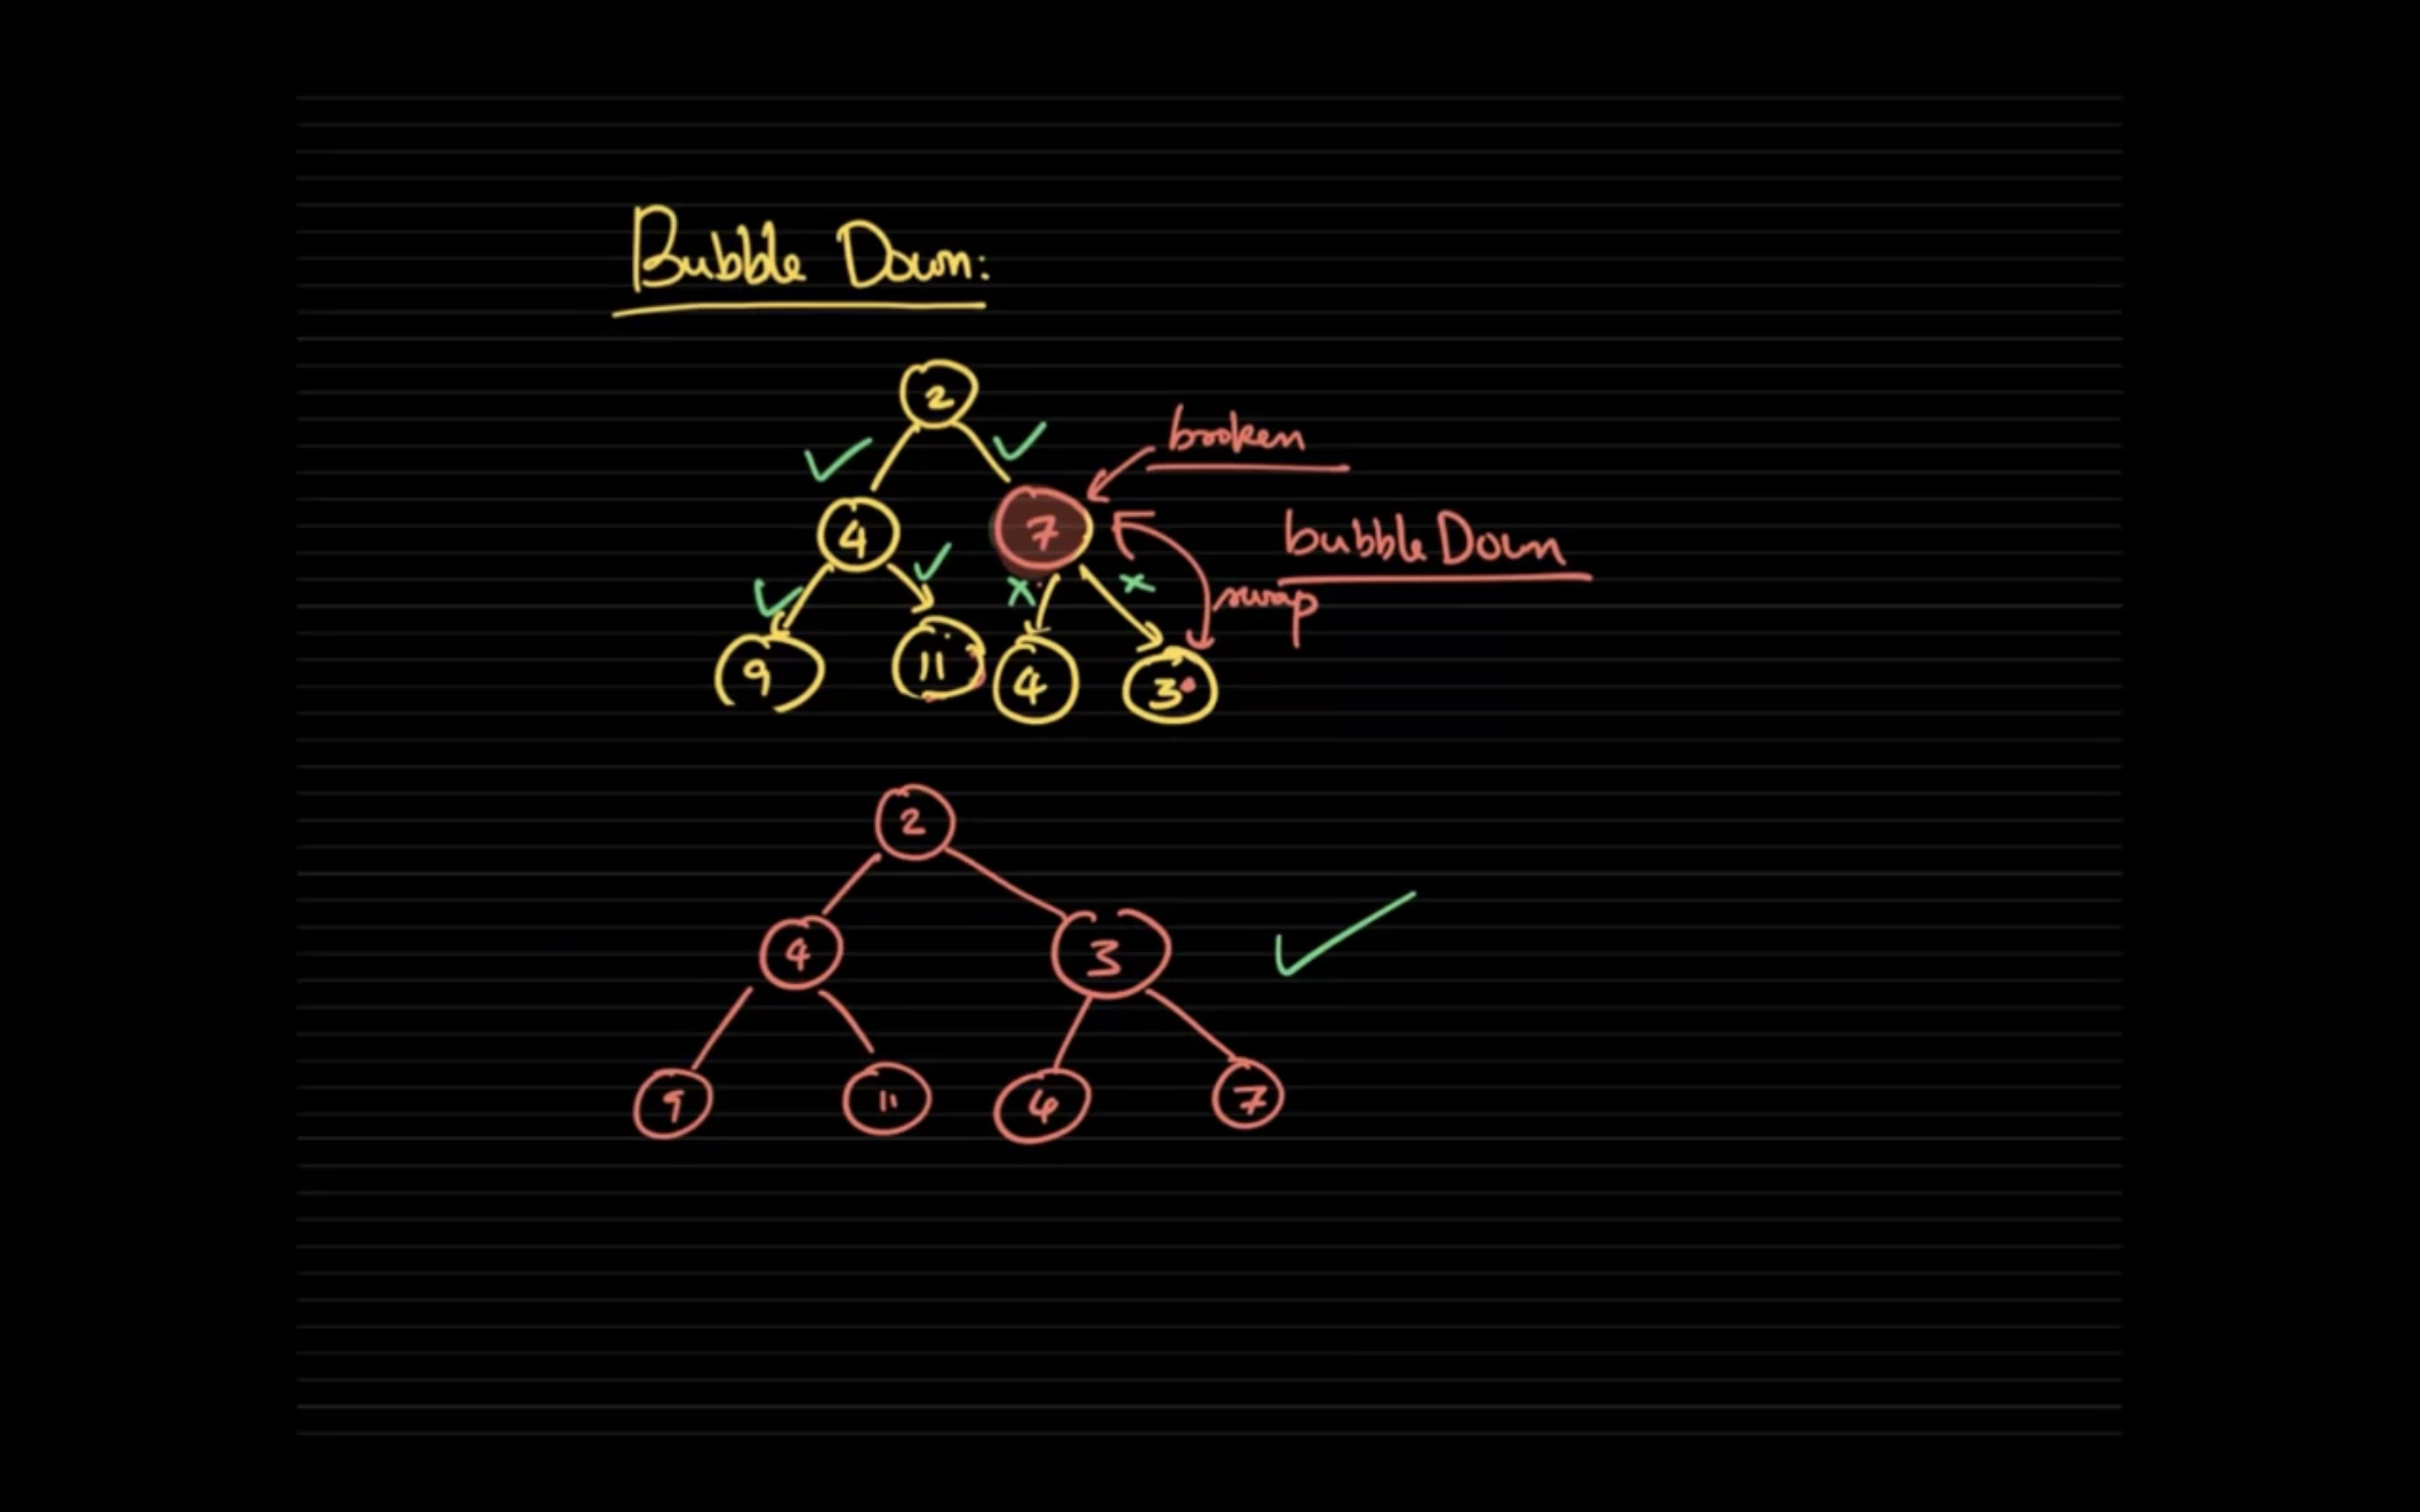 Bubble Down:
2
broken
4 7
bubbleDown
swap
9 11 4 3
2
4 3
9 11 4 7